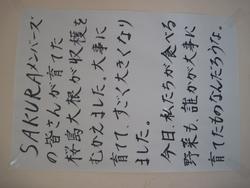 SAKURAメンバーズ
の皆さんが育てた
桜島大根が収穫を
むかえました。大事に
育てて、すごく大きくなり
ました。
今日、私たちが食べる
野菜も、誰かが大事に
育てたものなんだろうな。